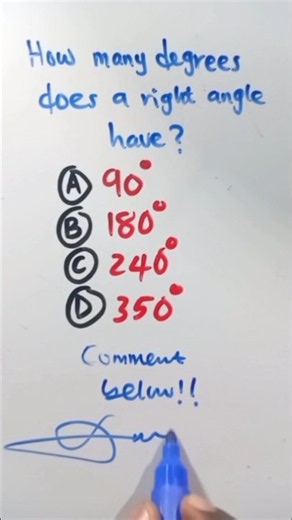 How many degrees
does a right angle
have?
A 90°
B 180°
C 240°
D 350°
Comment
below!!